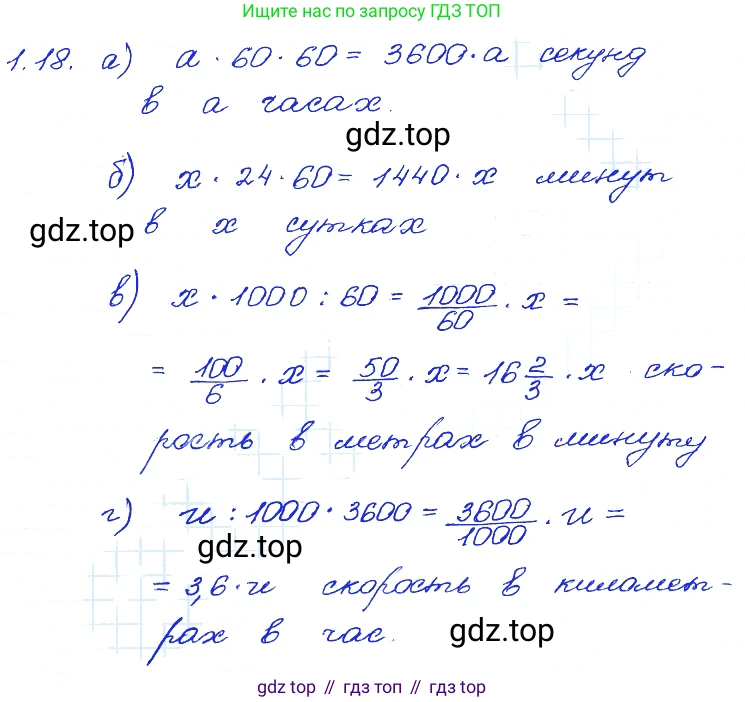 Ищите нас по запросу ГДЗ ТОП
1.18. а) a · 60 · 60 = 3600 · a секунд
в a часах.
gdz.top
б) x · 24 · 60 = 1440 · x минут
gdz.top в x сутках
в) x · 1000 : 60 = 1000/60 · x =
= 100/6 · x = 50/3 · x = 16 2/3 · x ско-
рость в метрах в минуту
г) u : 1000 · 3600 = 3600/1000 · u =
gdz.top
= 3,6 · u скорость в километ-
рах в час. gdz.top
gdz top // гдз топ // gdz top